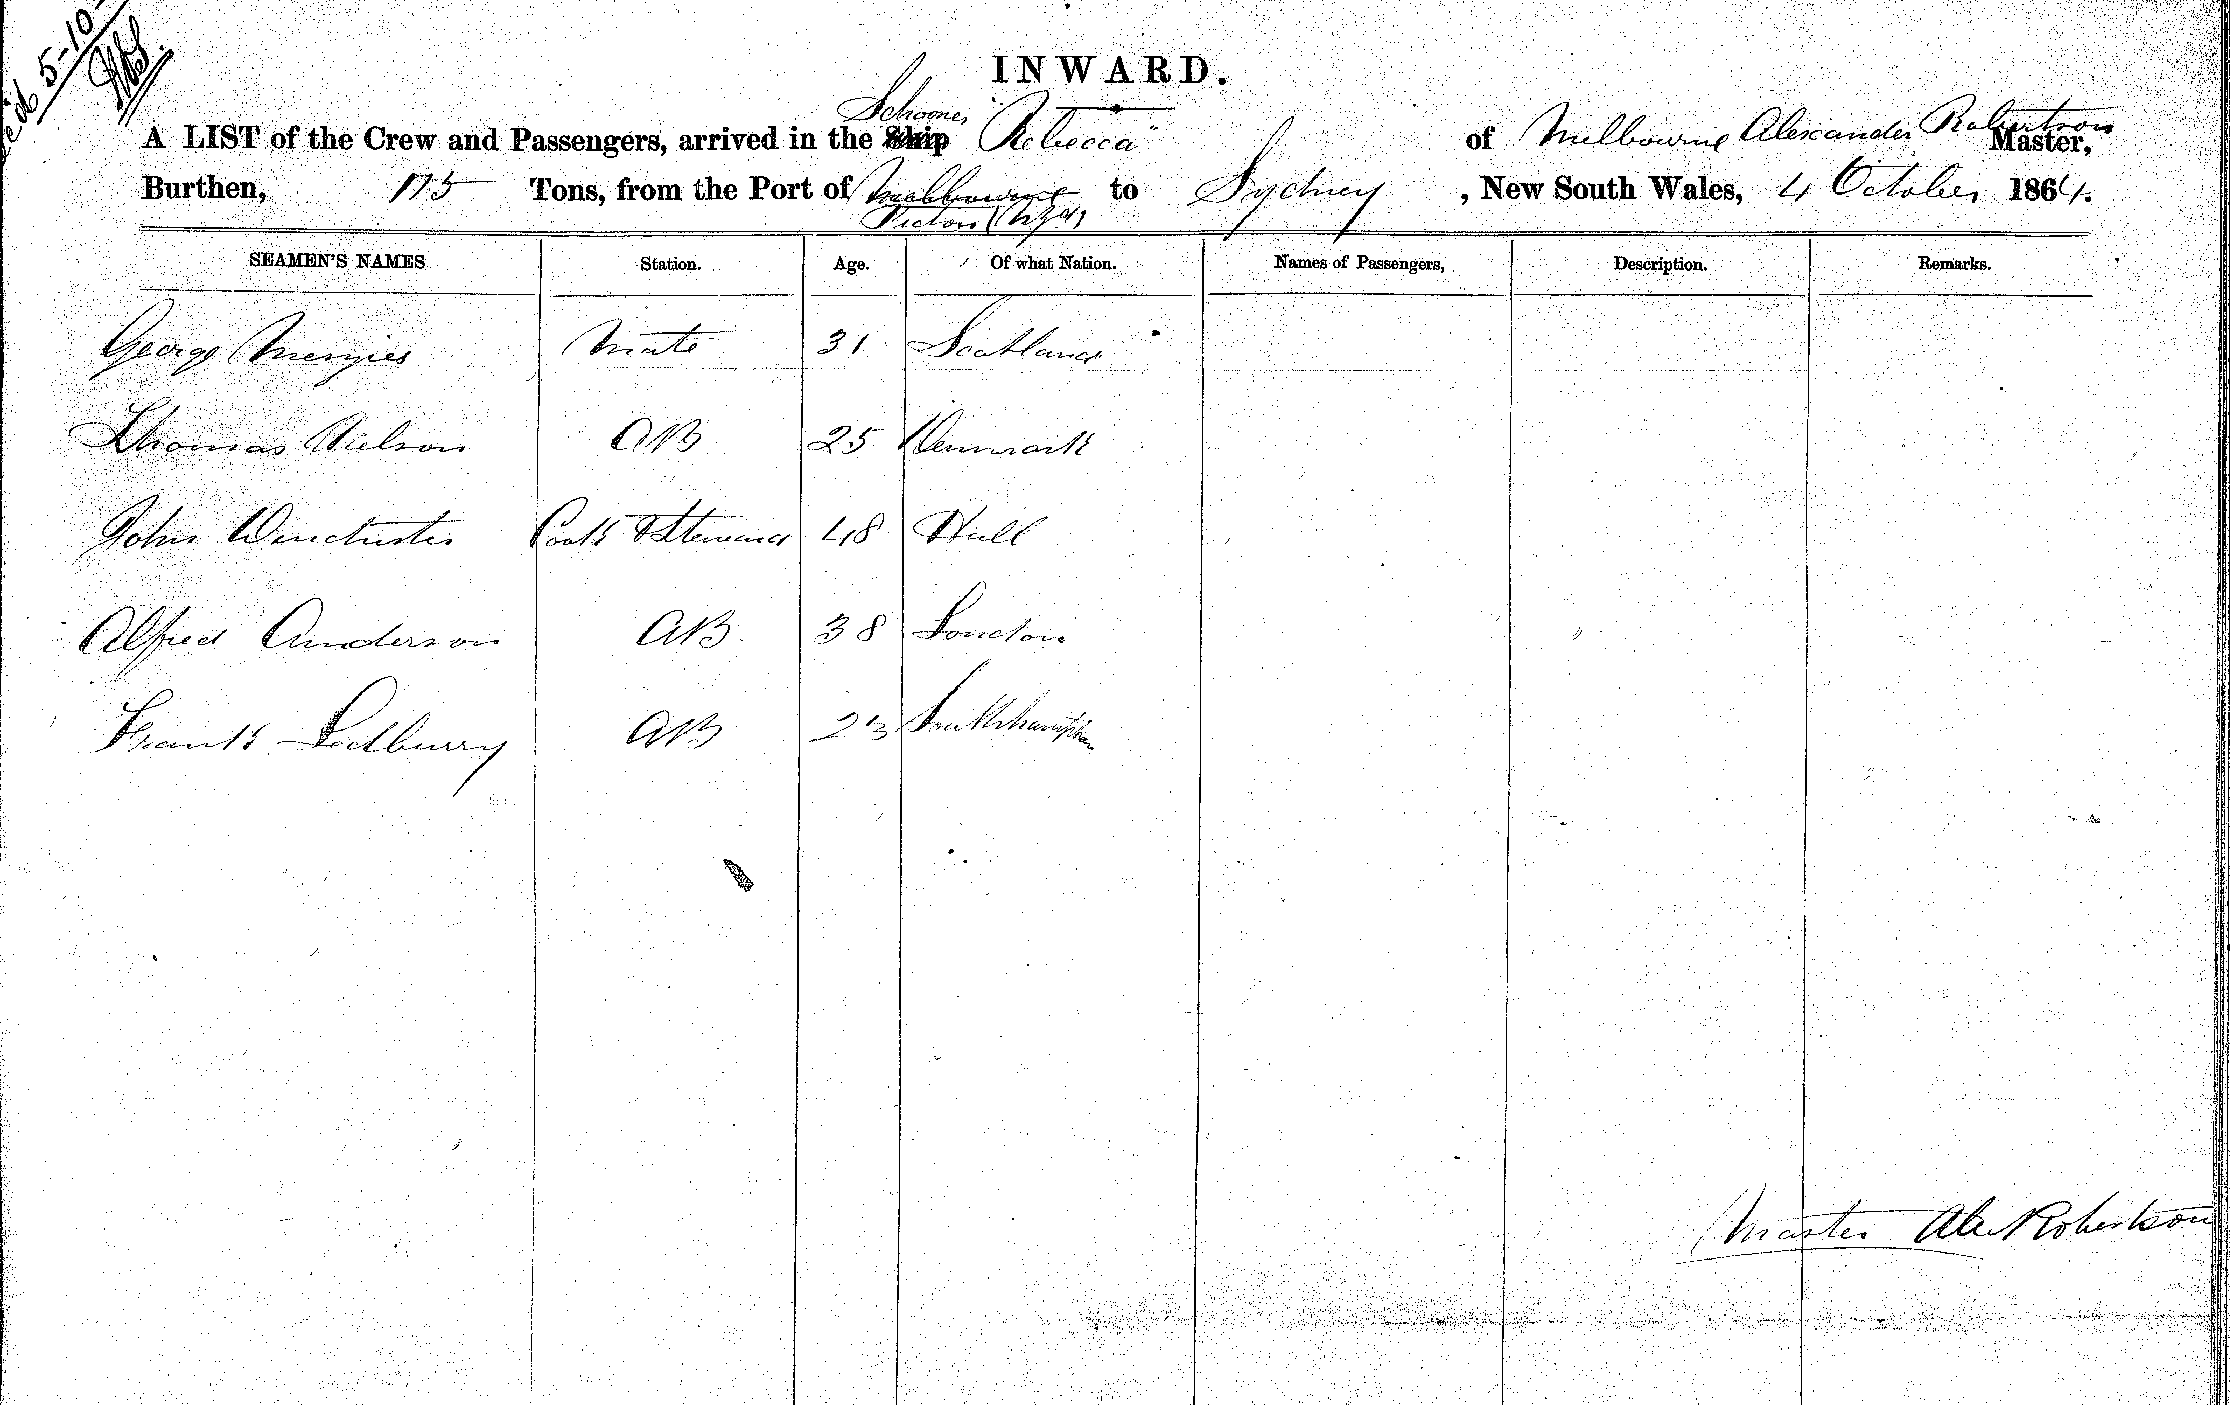 5-10-
INWARD.
Schooner
A LIST of the Crew and Passengers, arrived in the Ship "Rebecca" of Melbourne Alexander Robertson Master,
Burthen, 175 Tons, from the Port of Melbourne to Sydney, New South Wales, 4 October 1864.
Picton (NZd)
SEAMEN'S NAMES Station. Age. Of what Nation. Names of Passengers, Description. Remarks.
George Menzies Mate 31 Scotland
Thomas Nielson AB 25 Denmark
John Winchester Cook & Steward 48 Hull
Alfred Anderson AB 38 London
Frank Sedburry AB 23 Southhampton
Master Alex Robertson